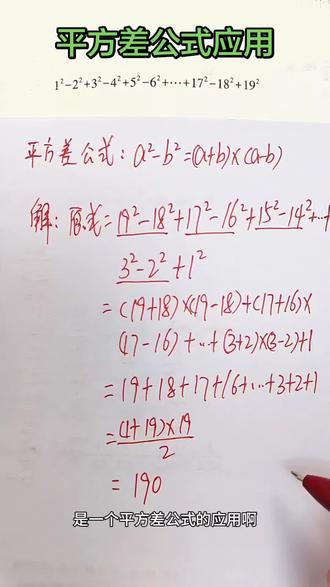 平方差公式应用
1²-2²+3²-4²+5²-6²+…+17²-18²+19²
平方差公式：a²-b²=(a+b)×(a-b)
解：原式=19²-18²+17²-16²+15²-14²+…+
3²-2²+1²
=(19+18)×(19-18)+(17+16)×
(17-16)+…+(3+2)×(3-2)+1
=19+18+17+16+…+3+2+1
=(1+19)×19/2
=190
是一个平方差公式的应用啊